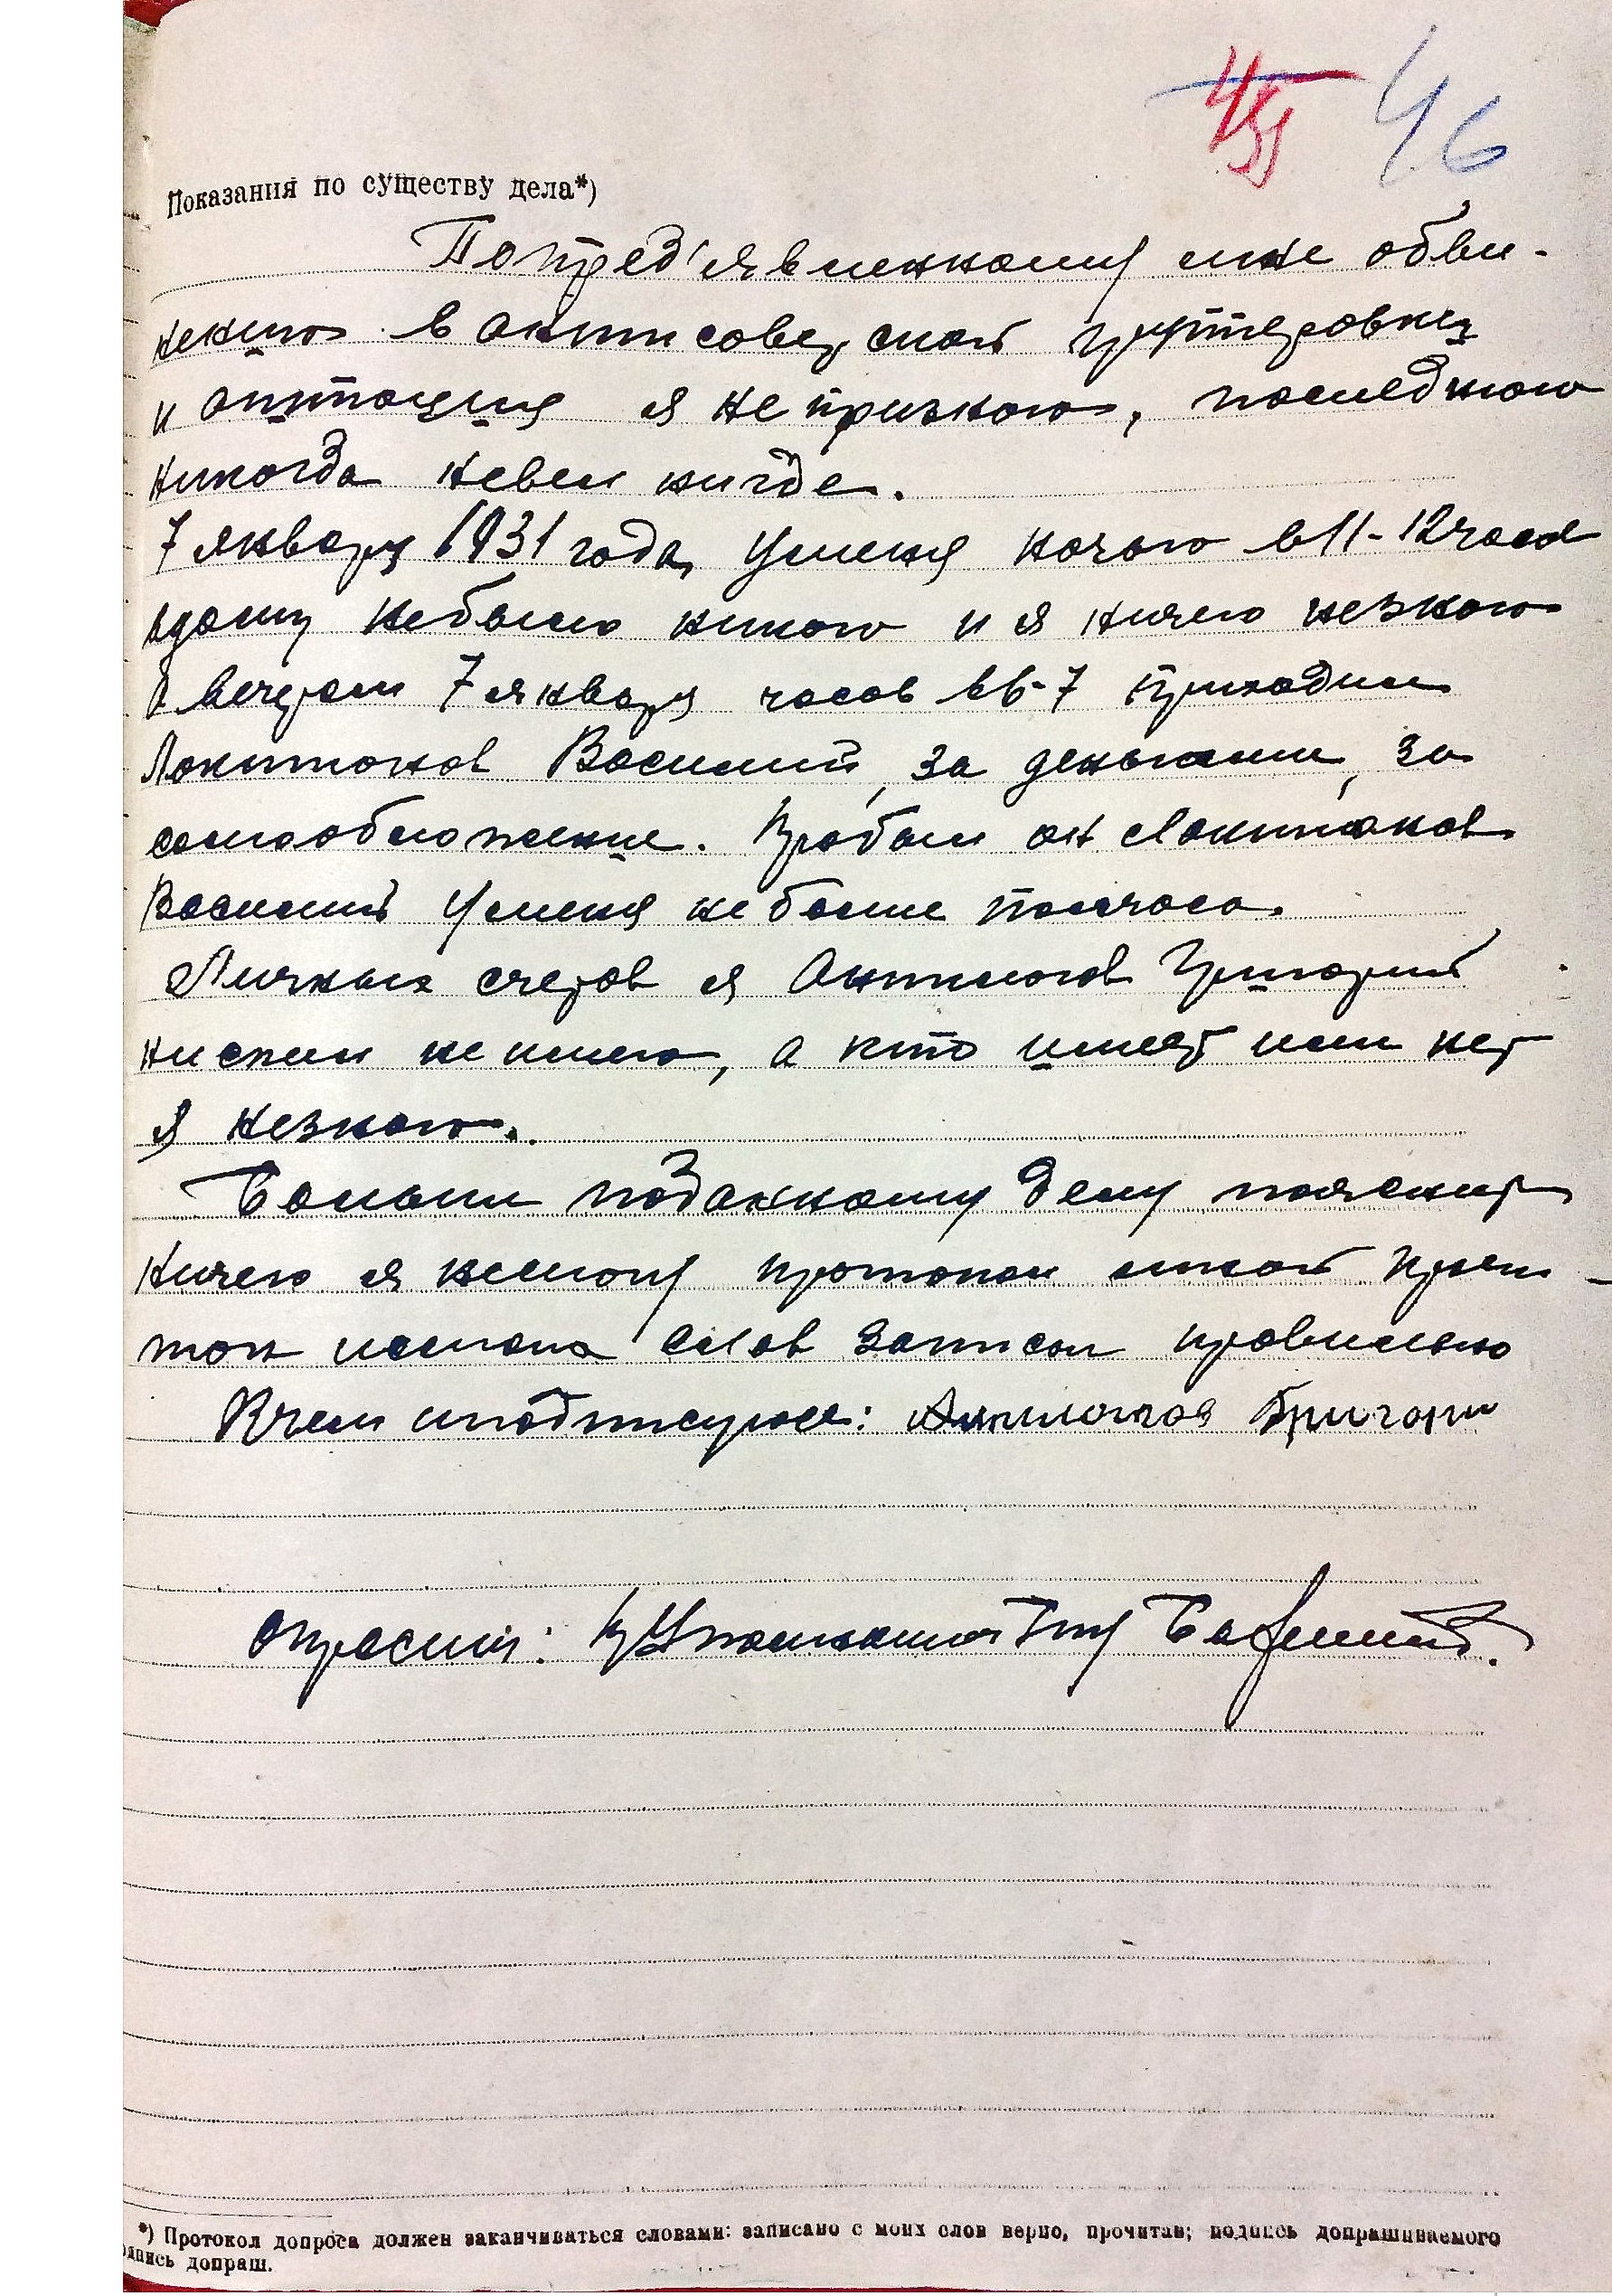 45 46
Показания по существу дела*)
По пред'явленному мне обви-
нению в антисоветской групперовки
и агитация я не признаю, последнюю
никогда невел нигде.
7 января 1931 года, Уменя ночью в 11-12 часов
вдому небыло никого и я ничего незнаю
а вечером 7 января часов в 6-7 приходил
Локтионов Василий, за деньгами, за
самообложение. Пробыл он Локтионов
Василий Уменя не более полчаса.
Личных счетов я Антипогов Григорий
ни скем не имею, а кто имеет или нет
я незнаю.
Больше поданному делу пояснить
ничего я немогу протокол мной прочи-
тан исмоих слов записан правильно
Вчем иподписуюсь: Григори
Опросил: Уполномоч
*) Протокол допроса должен заканчиваться словами: записано с моих слов верно, прочитан; подпись допрашиваемого
подпись допраш.